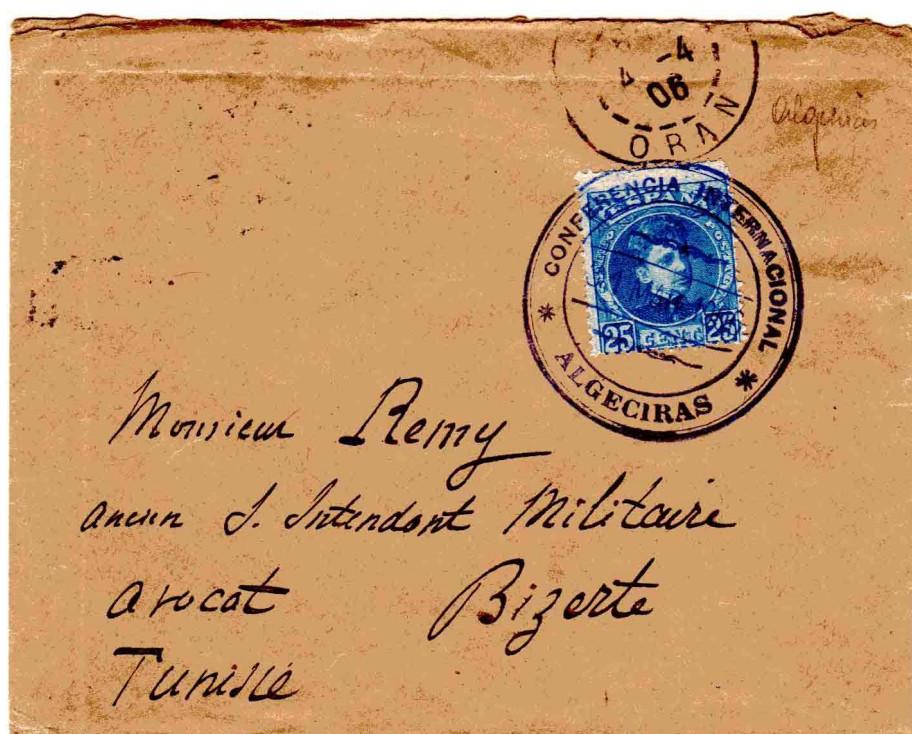 4 -4
06
ORAN
Algeciras
CONFERENCIA INTERNACIONAL
ESPAÑA
25 CENT. 25
* ALGECIRAS *
Monsieur Remy
ancien S. Intendant Militaire
avocat Bizerte
Tunisie